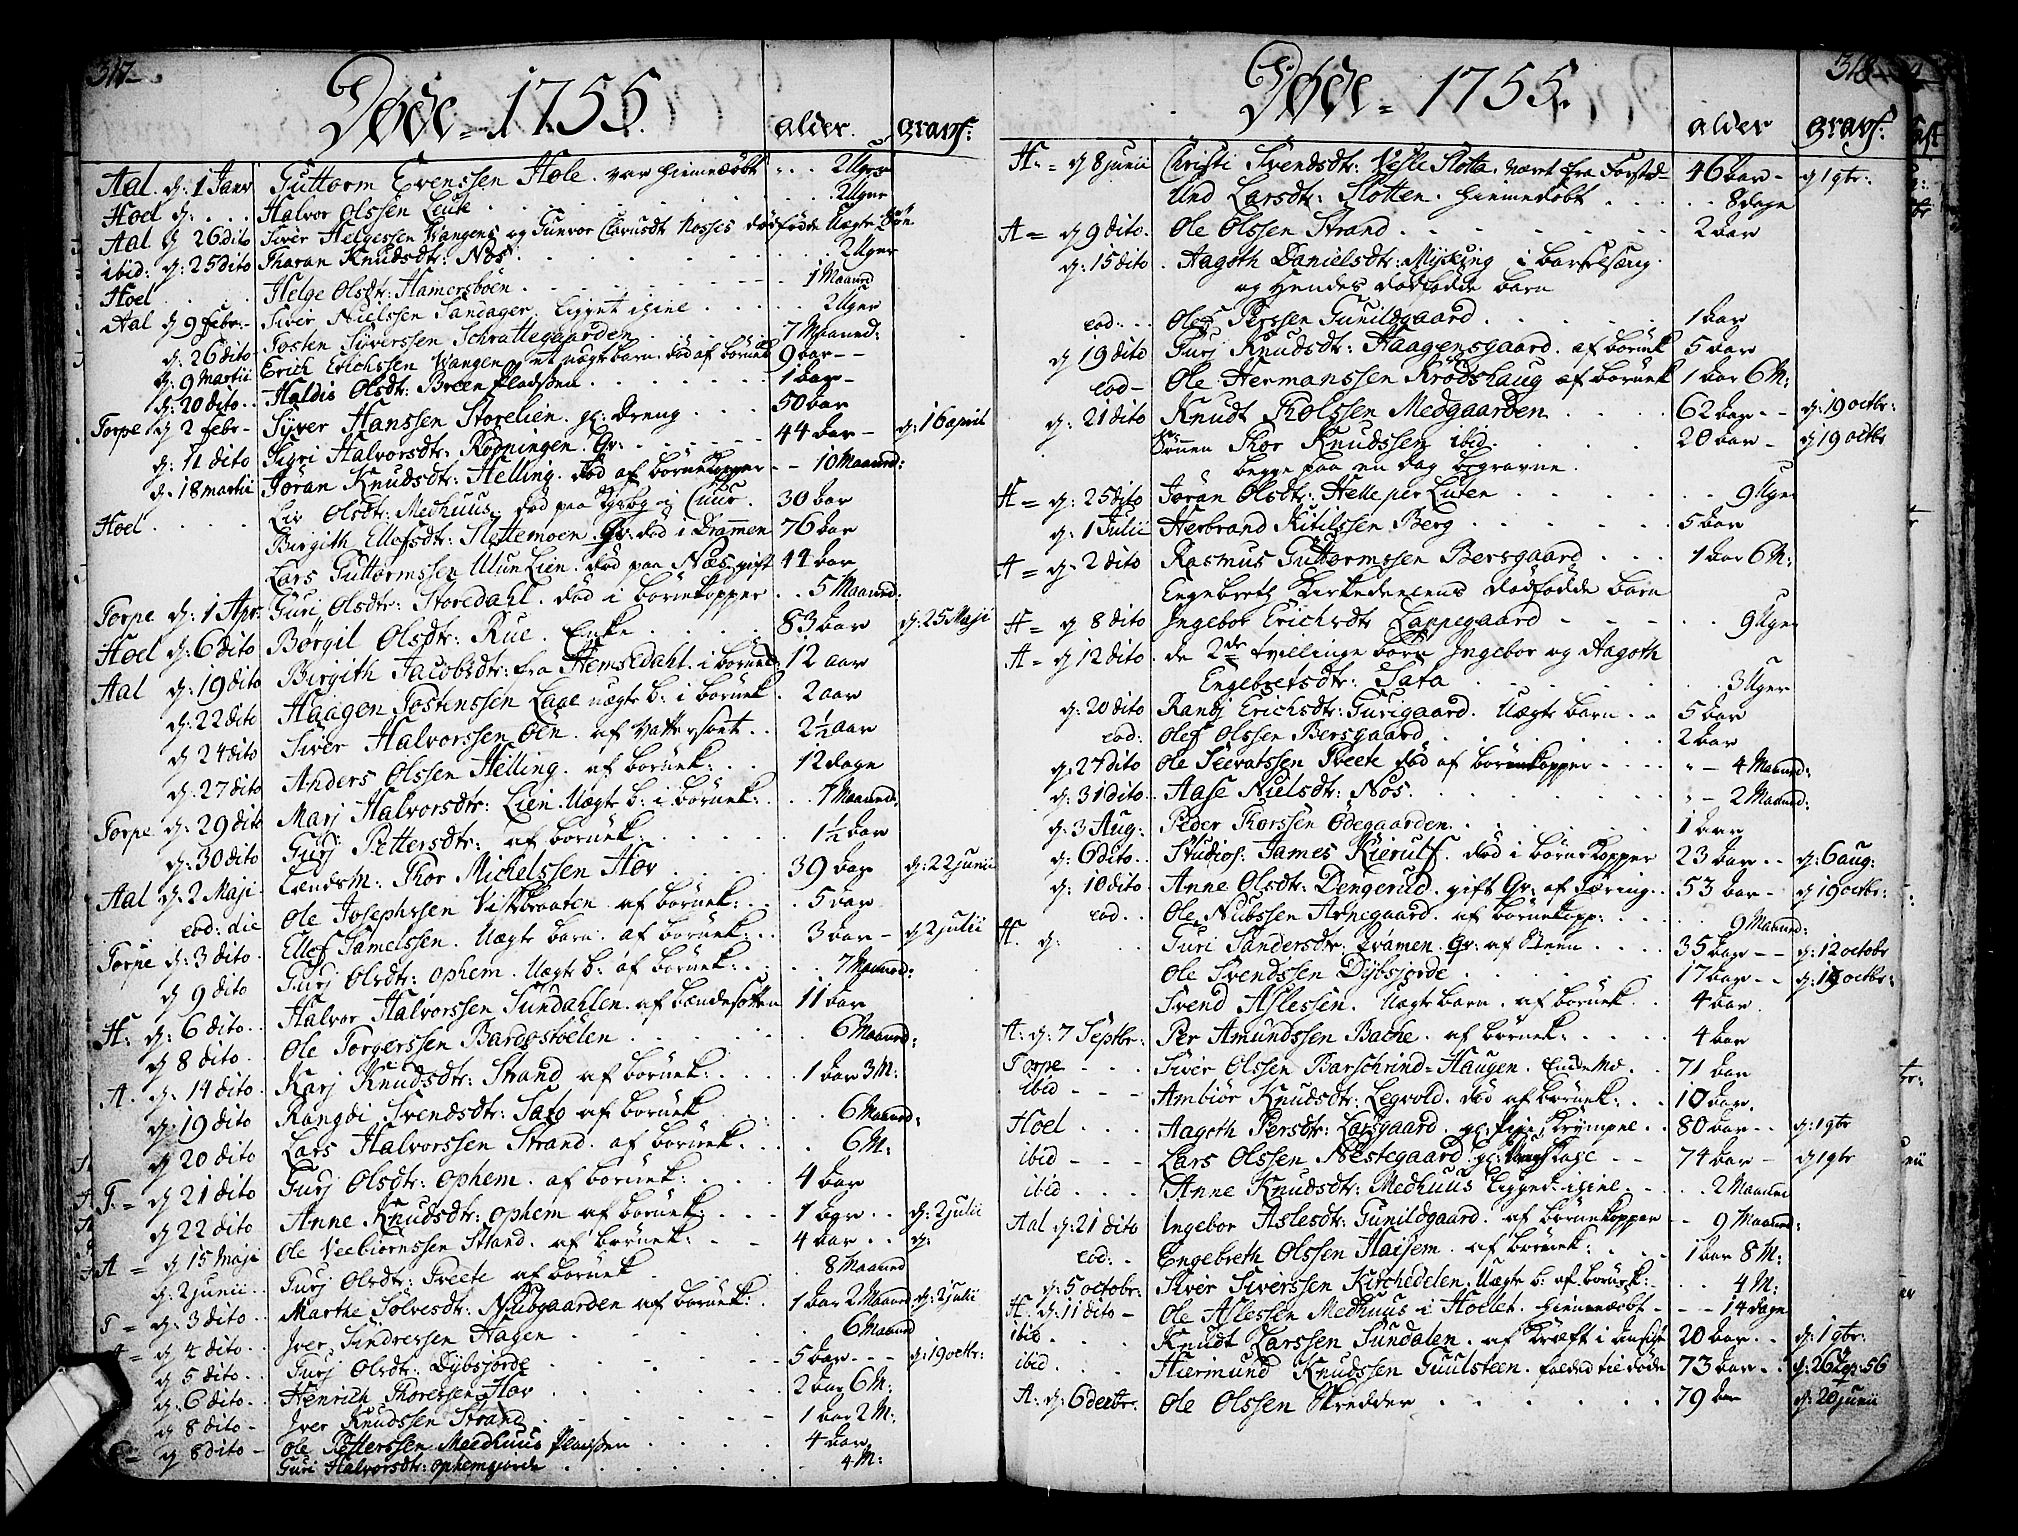 317
Døde 1755. alder. gravf:
Aal. d: 1 Janr Guttorm Evenssen Hole. var hiemedøbt 2 Uger
Hoel d: Halvor Olssen Leute 2 Uger
Aal d 26 dito Siver Helgessen Wangens og Gunvor Clausdt Nosses dødfødde Uægte Søn
ibid: d: 25 dito Tharan Knudsdtr: Nos 2 Uger
Hoel Helge Olsdtr: Hamersbøen 1 Maaned
Aal d 9 febr. Siver Nielssen Sandager. ligget ihiel 2 Uger
d: 26 dito Tosten Syverssen Schrattegaarden 7 Maaned:
d: 9 Martii Erich Erichssen Wangen et uægte barn. død af børnek 9 Aar
d: 20 dito Haldis Olsdt: Breen Pladssen 1 Aar
Torpe d 2 febr Syver Hanssen Storelien. gl: dreng 50 Aar d: 16 april
d: 11 dito Sigri Halvorsdtr: Rødningen. Qv: 44 Aar
d: 18 martii Jøran Knudsdtr: Helling. død af børnekopper 10 Maaned:
Hoel Liv Olsdtr: Medhuus. død paa 30 Aar
Birgith Ellofsdtr: Slettemoen Qv: død i Drammen 76 Aar
Lars Guttormssen Ulun Lien. død paa Næs, gift 44 Aar
Torpe d: 1 Apr. Guri Olsdtr: Storedahl. død i børnekopper 5 Maaned:
Hoel d: 6 dito Børgil Olsdtr: Rue. Enke 83 Aar d: 25 Maji
Aal d: 19 dito Birgith Jacobsdtr: fra Hemsedahl. i børnek: 12 aar
d: 22 dito Haagen Tostenssen Laae uægte b: i børnek. 2 aar
d: 24 dito Siver Halvorssen Øen. af Vattersoet 2½ aar
d: 27 dito Anders Olssen Helling. af børnek: 12 dage
Torpe. d: 29 dito Marj Halvorsdtr: Lien Uægte b: i børnek: 7 Maaned:
d: 30 dito Gurj Pettersdtr: af børnek: 1½ Aar
Aal d: 2 Maji Lændsm: Thor Michelssen Hov 39 Aar d: 22 junii
eod: die Ole Josephssen Viskbraaten af børnek: 5 Aar
Torpe d: 3 dito Ellef Samelssen. Uægte barn. af børnek: 3 Aar d 2 julii
d 9 dito Gurj Olsdtr: Ophem. Uægte b: af børnek: 7 Maaned:
H: d: 6 dito Halvor Halvorssen Sundahlen. af bændesotten 11 Aar
d 8 dito Ole Torgerssen Bardostølen 6 Maaned:
A. d: 14 dito Karj Knudsdtr: Strand af børnek: 1 Aar 3 M:
d: 19 dito Rangdi Svendsdtr: Sato af børnek 6 Maaned:
d 20 dito Lars Halvorssen Strand. af børnek: 6 M:
T. = d 21 dito Gurj Olsdtr: Ophem. af børnek: 4 Aar
d 22 dito Anne Knudsdtr: Ophem af børnek: 1 Aar d: 2 julii
A = d 15 Maji Ole Veebiørnssen Strand. af børnek: 4 Aar d:
d: 2 junii Gurj Olsdtr: Treete af børnek 8 Maaned
T = d: 3 dito Marthe Sølvesdtr: Nubgaarden af børnek: 1 Aar 2 Maaned d: 2 julii
A = d 4 dito Iver Sindressen Hagen 6 Maaned
d 5 dito Gurj Olsdtr: Dybsjorde 5 Aar d: 19 octbr:
d: 6 dito Henrich Thoressen Hov 2 Aar 6 M:
d 8 dito Iver Knudssen Strand 1 Aar 2 M:
d 8 dito Ole Petterssen Meedhuus Pladssen 4 Aar
Guri Halvorsdtr: Ophemsjorde 4 M:
318
Døde 1755. alder gravf:
H: = d 8 junii Christi Svendsdtr: Vesle Slotta, været fra Forstd 46 Aar d 1 9br:
Und Larsdtr: Slotten. hiemedøbt 8 dage
A = d 9 dito. Ole Olssen Strand 2 Aar
d: 15 dito. Aagoth Danielsdtr: Myking i barselseng
og hendes dødfødde barn
eod: Olef Perssen Gunildgaard 1 Aar
d 19 dito Gurj Knudsdtr: Haagensgaard. af børnek 5 Aar
eod Ole Hermanssen Krødshaug af børnek 1 Aar 6 M:
d: 21 dito Knudt Tholssen Medgaarden 62 Aar d: 19 octbr:
Sønnen Thor Knudssen ibid. 20 Aar d 19 octbr
begge paa en dag begravne.
H = d: 25 dito Jøran Olsdtr: Helle per Luten 9 Uger
d: 1 Julii Herbrand Kitilssen Berg 5 Aar
A = d: 2 dito Rasmus Guttormssen Bersgaard 1 Aar 6 M:
Engebreth Kirkedelens dødfødde barn
H = d 8 dito Ingebor Erichsdtr Lappegaard 9 Uger
A = d 12 dito. de 2de tvillinge børn Ingebor og Aagoth
Engebretsdtr: Sata 3 Uger
d: 20 dito Randj Erichsdtr: Gurigaard. Uægte barn 5 Aar
eod: Olef Olssen Bersgaard 2 Aar
d: 27 dito Ole Seevatssen Treete død af børnekopper 4 Maaned:
d: 31 dito. Aase Nielsdtr: Nos 2 Maaned:
d: 3 Aug: Peder Thorssen Ødegaarden 1 Aar
d: 6 dito. Studios: James Kierulf. død i børnekopper 23 Aar d: 6 aug:
d: 10 dito Anne Olsdtr: Dengerud. gift Qv: af Tæring. 53 Aar d 19 octbr:
eod. Ole Nubssen Arnegaard. af børnekopp: 9 Maaned:
H. d: Guri Sandersdtr: Brømen. Qv: af Steen 35 Aar d: 12 octobr
Ole Svendssen Dybsjorde 17 Aar d: 19 octbr:
Svend Aslessen. Uægte barn. af børnek. 4 Aar
A: d: 7 Septbr: Per Amundssen Bache. af børnek: 4 Aar
Torpe Siver Olssen Barschrind-Haugen. Enckemd. 71 Aar
ibid Ambiør Knudsdtr: Legvold. død af børnek: 10 Aar.
Hoel Aagoth Persdtr: Larsgaard. gl: Pige, Krympel 80 Aar d: 1 9br
ibid Lars Olssen Nestegaard gl: 74 Aar d 1 9br
ibid Anne Knudsdtr: Medhuus ligged ihiel. 2 Maaned
Aal d: 21 dito Ingebor Aslesdtr: Gunildgaard. af børnekopper 9 Maaned:
eod: Engebreth Olssen Haisem. af børnek: 1 Aar 8 M:
d: 5 octobr: Siver Siverssen Kirchedelen. Uægte b: af børnek: 4 M:
H: d: 11 dito Ole Aslessen Medhuus i Hoelet. hiemmedøbt 14 dage
ibid Knudt Larssen Sundalen. af Kræft i ansigt 20 Aar d: 1 9br:
ibid. Hiermund Knudssen Guulsteen. falded til døde 73 Aar
A: d: 6 decbr. Ole Olssen Skredder 79 Aar d: 20 junii